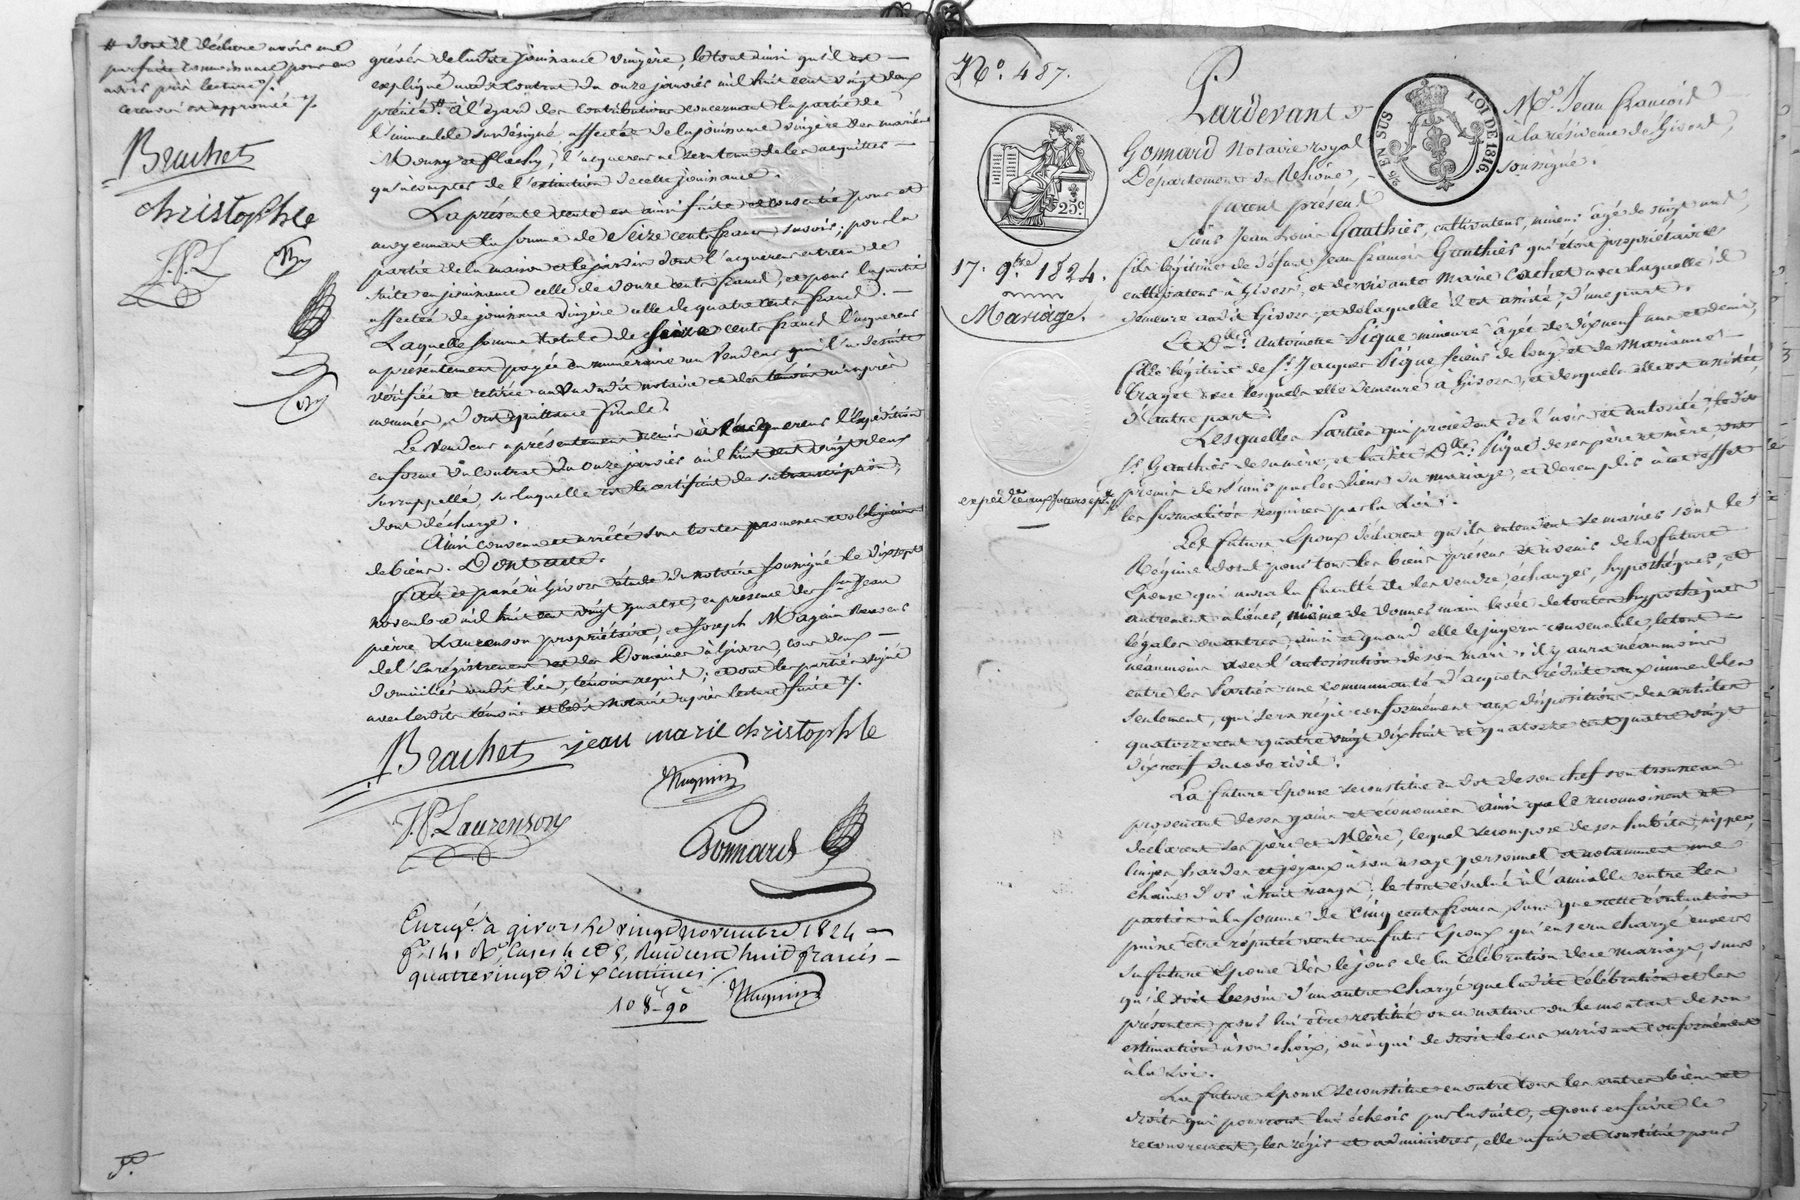 # dont il déclare avoir une
parfaite connaissance pour en
avoir pris lecture ./.
le renvoi est approuvé ./.
Brachet
christophle
J.P.L
grévée de ladite jouissance viagère, le tout ainsi qu'il est
expliqué audit contrat du onze janvier mil huit cent vingt deux
précité # à l'égard des contributions concernant la partie de
l'immeuble sus désigné affectée de la jouissance viagère des mariés
Mouny et flachy, l'acquereur ne sera tenu de les acquitter
qu'à compter de l'extinction de cette jouissance.
La présente vente est ainsi faite et consentie pour et
moyennant la somme de Seize cents francs, savoir; pour la
partie de la maison et le jardin dont l'acquereur entrera de
suite en jouissance celle de douze cents francs, et pour la partie
affectée de jouissance viagère celle de quatre cents francs.
Laquelle somme totale de seize cents francs l'acquereur
a présentement payée en numéraire au Vendeur qui l'a de suite
vérifiée et retirée au vu dudit notaire et des témoins ci-après
nommés, dont quittance finale.
Le Vendeur a présentement remis à l'acquereur l'expédition
en forme du contrat du onze janvier mil huit cent vingt deux
sus rappellé, sur laquelle est le certificat de sa transcription,
dont décharge.
Ainsi convenu et arrêté sous toutes promesses et obligations
de biens. Dont acte.
Fait et passé à Givors étude du notaire soussigné le dix sept
novembre mil huit cent vingt quatre, en présence des Srs Jean
pierre Laurenson propriétaire, et Joseph Magnin Receveur
de l'Enregistrement et des Domaines à Givors, tous deux
domiciliés audit lieu, témoins requis; et ont les parties signé
avec lesdits témoins et ledit notaire après lecture faite ./.
Brachet jean marie christophle
Magnin
J.P. Laurenson
Gonnard
Enregé à givors le vingt novembre 1824
fo 141 Ro, Cases 4 et 5, Reçu cent huit francs
quatre vingt dix centimes
108f 90c Magnin
No. 487.
25c.
17. 9bre 1824.
Mariage.
expédiée aux futurs époux
Pardevant Me Jean francois
Gonnard Notaire royal à la résidence de Givors,
Département du Rhône, soussigné.
EN SUS LOI DE 1816
furent présens
Sieur Jean Louis Gauthier, cultivateur, mineur âgé de vingt ans,
fils légitime de défunt Jean francois Gauthier qui étoit propriétaire
cultivateur à Givors, et de vivante Marie Cachet avec laquelle il
demeure audit Givors, et de laquelle il est assisté, d'une part.
Et Dlle Antoinette Pigue mineure âgée de dix neuf ans et demi,
fille légitime de Sr Jacques Pigue scieur de long, et de Marianne
Craget avec lesquels elle demeure à Givors, et desquels elle est assistée,
d'autre part.
Lesquelles Parties qui procèdent de l'avis et autorité, ledit
Sr Gauthier de sa mère, et ladite Dlle Pigue de ses père et mère, ont
promis de s'unir par les liens du mariage, et de remplir à cet effet
les formalités requises par la Loi.
Les futurs Epoux déclarent qu'ils entendent se marier sous le
Régime dotal pour tous les biens présens et à venir de la future
Epouse qui aura la faculté de les vendre, échanger, hypothéquer, et
autrement aliéner, même de donner main levée de toutes hypothèques
légales ou autres, ainsi et quand elle le jugera convenable, le tout
néanmoins avec l'autorisation de son mari: il y aura néanmoins
entre les Parties une communauté d'acquets réduite aux immeubles
seulement, qui sera régie conformément aux dispositions des articles
quatorze cent quatre vingt dix huit et quatorze cent quatre vingt
dix neuf du code civil.
La future Epouse se constitue en dot de son chef son trousseau
provenant de ses gains et économies ainsi que le reconnoissent et
déclarent ses père et Mère, lequel se compose de ses habits, nippes,
linges, hardes et joyaux à son usage personnel et notamment une
chaine d'or à huit rangs; le tout évalué à l'amiable entre les
parties à la somme de Cinq cents francs, sans que cette évaluation
puisse être réputée vente au futur Epoux qui en sera chargé envers
sa future Epouse dès le jour de la célébration de ce mariage, sans
qu'il soit besoin d'un autre chargé que ladite célébration et les
présentes, pour lui être restitué ou en nature ou le montant de son
estimation à son choix, ou à qui de droit le cas arrivant conformément
à la Loi.
La future Epouse se constitue en outre tous les autres biens et
droits qui pourront lui échoir par la suite, et pour en faire le
recouvrement, les régir et administrer, elle a fait et constitué pour